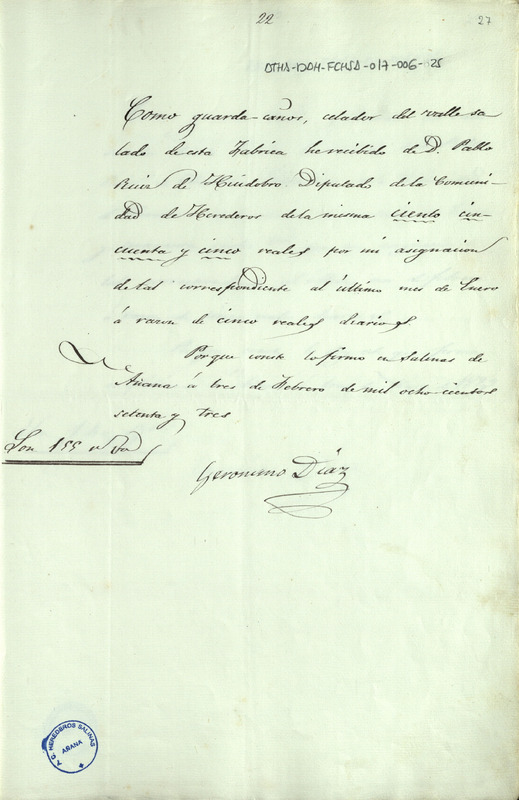 22
27
DTHA-DAH-FCHSA-017-006-25
Como guarda-caños, celador del valle sa
lado de esta Fabrica he recibido de D. Pablo
Ruiz de Huidobro Diputado de la Comuni-
dad de Herederos de la misma ciento cin-
cuenta y cinco reales por mi asignacion
de las correspondiente al último mes de Enero
á razon de cinco reales diarios.
Porque conste lo firmo en Salinas de
Añana á tres de Febrero de mil ocho cientos
setenta y tres
Son 155 r.s
Geronimo Diaz
HEREDEROS SALINAS
AÑANA